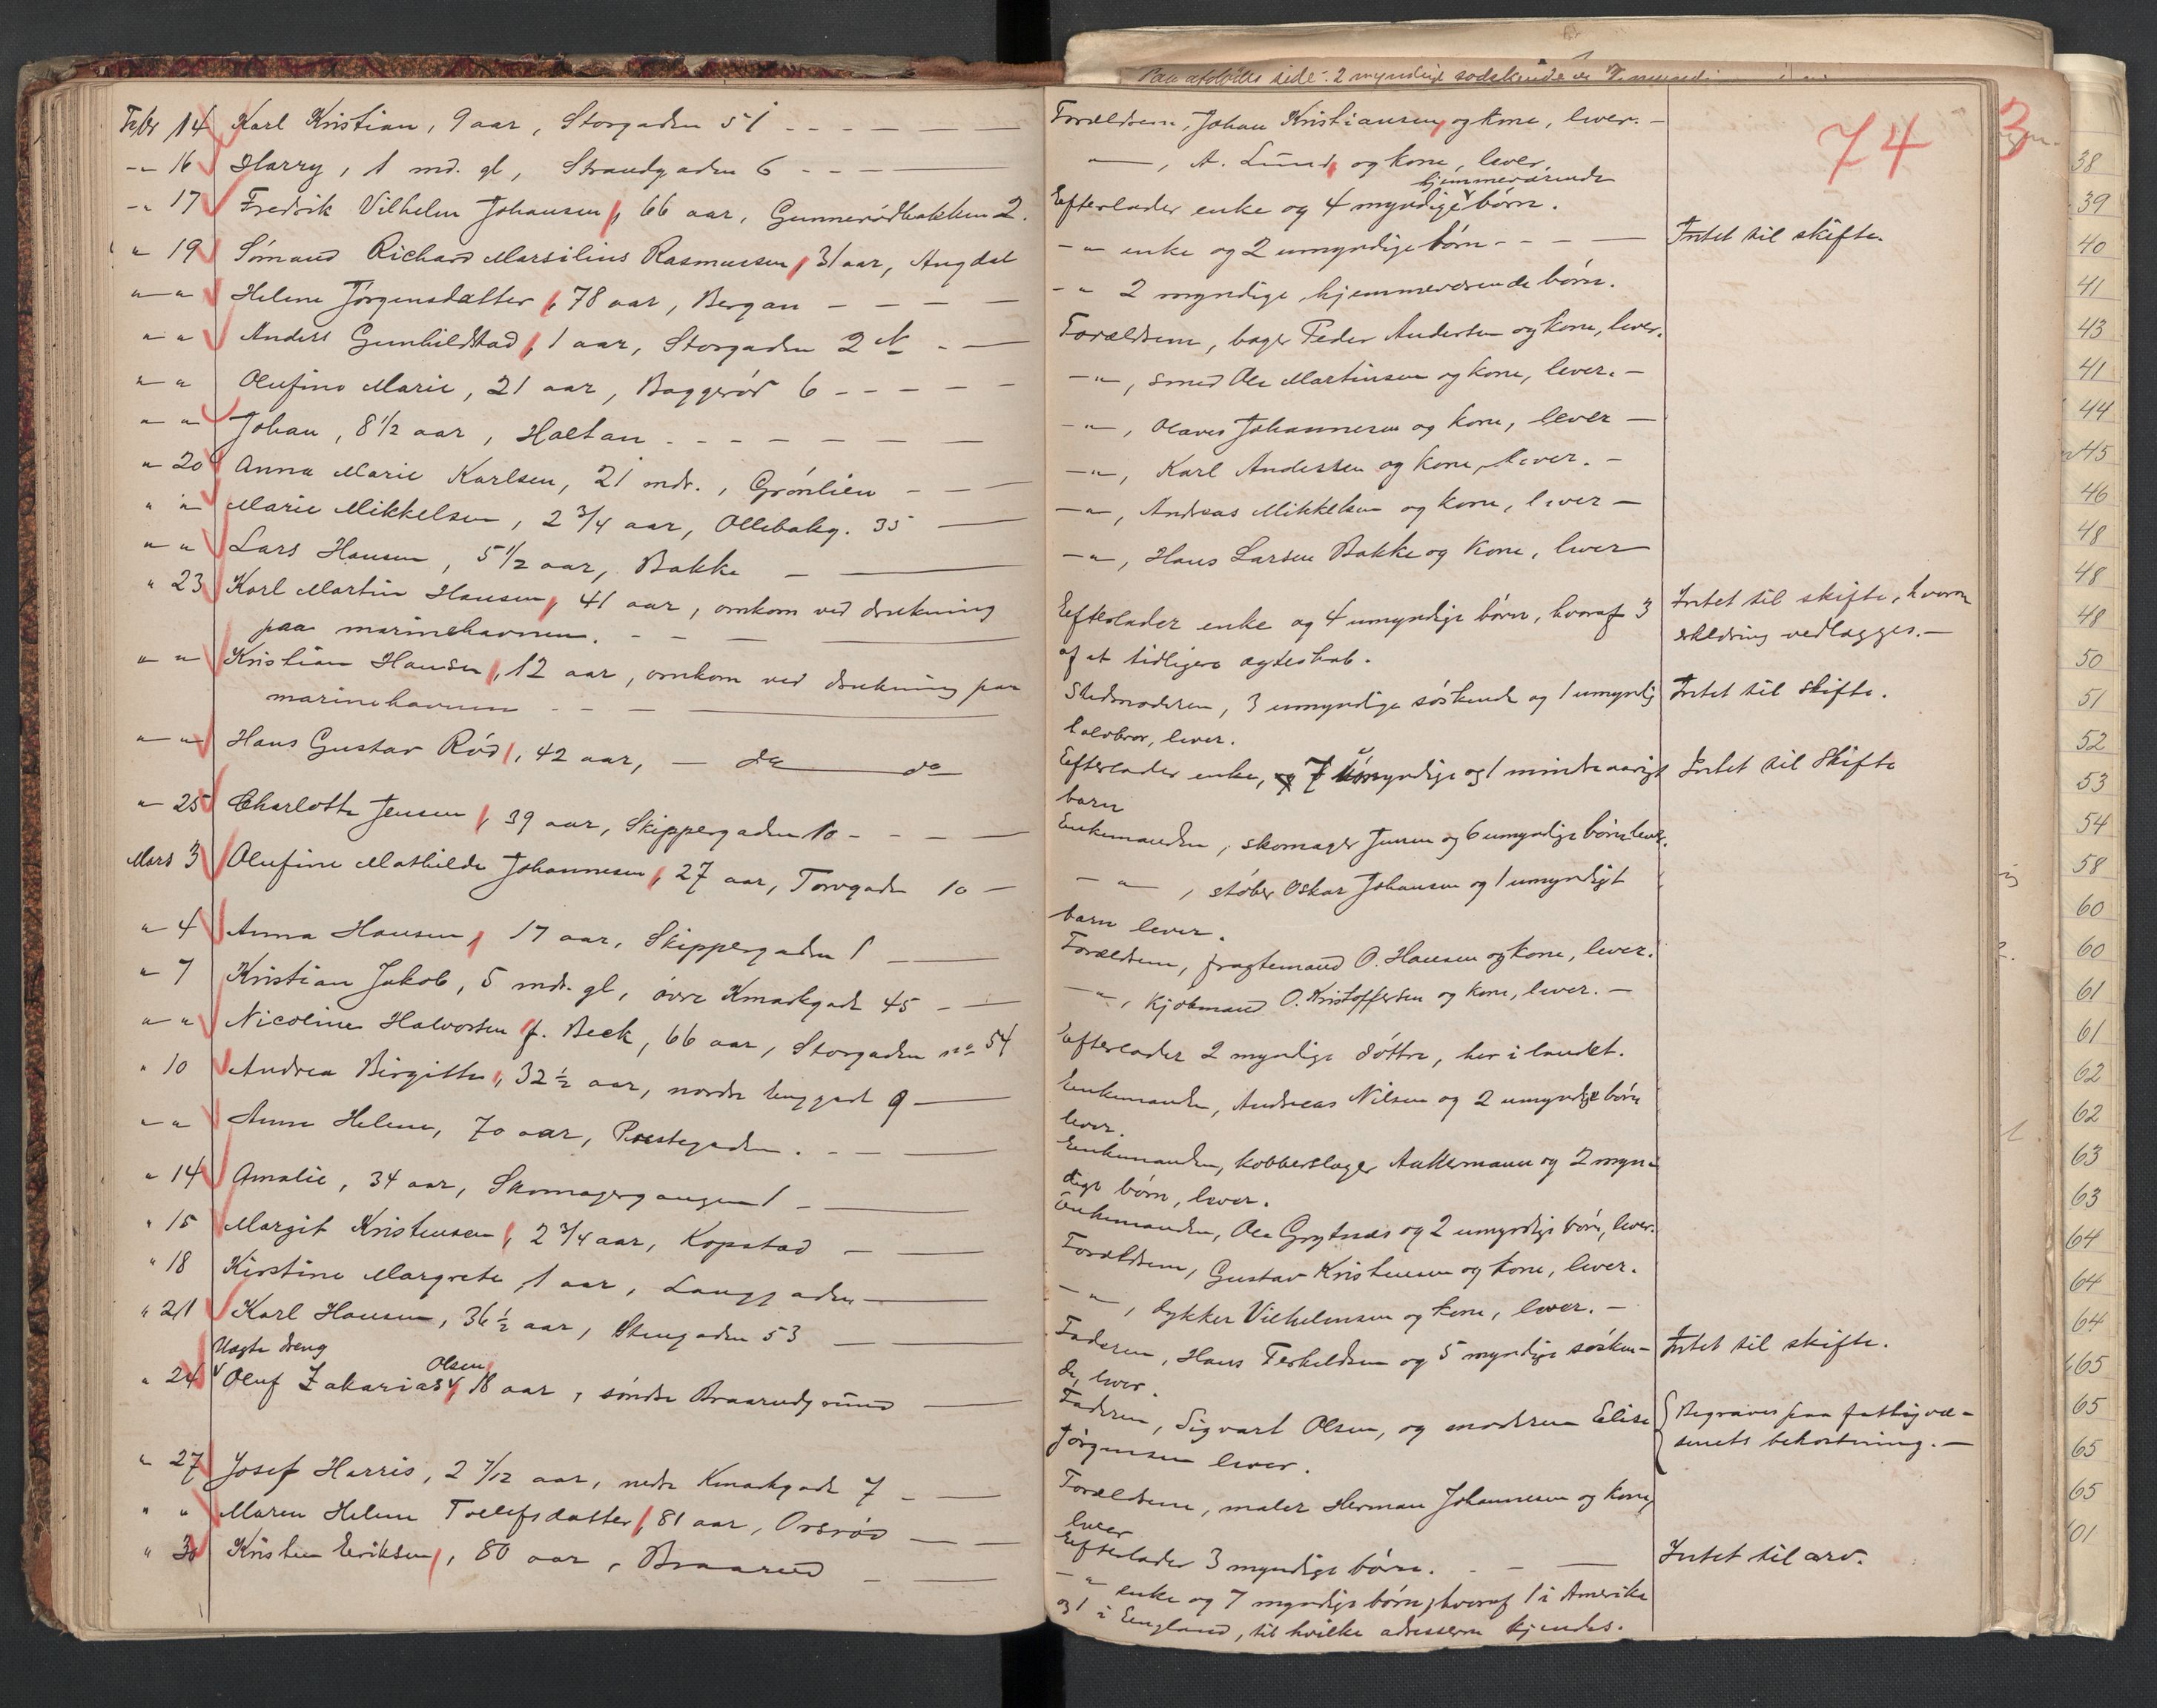 Febr 14 Karl Kristian, 9 aar, Storgaden 51 - - - —
-„- 16 Harry, 1 md. gl, Strandgaden 6 - - - —
-„ 17 Fredrik Vilhelm Johansen, 66 aar, Gunnerödbakken 2.
„ 19 Sömand Richard Marsilius Rasmussen, 31 aar, Angdal
„ „ Helene Jörgensdatter, 78 aar, Bergan - - - -
„ „ Anders Gunhildstad, 1 aar, Storgaden 2 A - -
„ „ Olufine Marie, 21 aar, Baggeröd 6 - - - -
„ „ Johan, 8 1/2 aar, Holtan - - - - - -
„ 20 Anna Marie Karlsen, 21 mdr., Grönlien - - —
„ „ Marie Mikkelsen, 2 3/4 aar, Ollebakg. 35 —
„ „ Lars Hansen, 5 1/2 aar, Bakke - —
„ 23 Karl Martin Hansen, 41 aar, omkom ved drukning
paa marinehavnen. - - —
„ „ Kristian Hansen, 12 aar, omkom ved drukning paa
marinehavnen - - - —
„ „ Hans Gustav Röd, 42 aar, — do — do
„ 25 Charlotte Jensen, 39 aar, Skippergaden 10 - - - —
Mars 3 Olufine Mathilde Johannesen, 27 aar, Torvgaden 10 -
„ 4 Anna Hansen, 17 aar, Skippergaden 1 - —
„ 7 Kristian Jakob, 5 mdr. gl, övre Kmarkgade 45 - —
„ „ Nicoline Halvorsen f. Beck, 66 aar, Storgaden no 54
„ 10 Andrea Birgitte, 32 1/2 aar, nordre langgade 9 —
„ „ Anne Helene, 70 aar, Prestegaden. - —
„ 14 Amalie, 34 aar, Skomagergangen 1 - —
„ 15 Margit Kristensen, 2 3/4 aar, Kopstad - —
„ 18 Kirstine Margrete, 1 aar, Langgaden —
„ 21 Karl Hansen, 36 1/2 aar, Stengaden 53 — —
Uægte dreng
Olsen
„ 24 Oluf Zakarias, 18 aar, söndre Braarudgrund —
„ 27 Josef Harris, 2 7/12 aar, nedre Kmarkgade 7 - —
„ „ Maren Helene Tollefsdatter, 81 aar, Oreröd — —
„ 30 Kristen Eriksen, 80 aar, Braarud - —
Paa afdödes side: 2 myndige södskende
74
Forældrene, Johan Kristiansen, og kone, lever. -
—„—, A. Lund, og kone, lever.
hjemmeværende
Efterlader enke og 4 myndige börn.
-„ enke og 2 umyndige börn - - - — Intet til skifte.
-„ 2 myndige, hjemmeværende börn.
Forældrene, bager Peder Andersen og kone, lever.
-„-, smed Ole Martinsen og kone, lever. -
-„-, Olaves Johannesen og kone, lever -
-„-, Karl Andersen og kone, lever. -
-„-, Andreas Mikkelsen og kone, lever -
-„-, Hans Larsen Bakke og kone, lever
Efterlader enke og 4 umyndige börn, hvoraf 3 Intet til skifte, hvorom
af et tidligere ægteskab. erklæring vedlægges. -
Stedmoderen, 3 umyndige söskende og 1 umyndig Intet til skifte.
halvbror, lever.
Efterlader enke, 7 umyndige og 1 mindreaarigt Intet til Skifte
barn
Enkemanden, skomager Jensen og 6 umyndige börn lever.
-„-, stöber Oskar Johansen og 1 umyndigt
barn lever.
Forældrene, fragtemand O. Hansen og kone, lever.
-„-, kjöbmand O. Kristoffersen og kone, lever. -
Efterlader 2 myndige döttre, her i landet.
Enkemanden, Andreas Nilsen og 2 umyndige börn
lever.
Enkemanden, kobberslager Ankermann og 2 myn-
dige börn, lever.
Enkemanden, Ole Grytnæs og 2 umyndige börn, lever.
Forældrene, Gustav Kristensen og kone, lever.
-„-, dykker Vilhelmsen og kone, lever. -
Faderen, Hans Terkeldsen og 5 myndige södsken- Intet til skifte.
de, lever.
Faderen, Sigvart Olsen, og moderen Elise Begraves paa fattigvæ-
Jörgensen lever. senets bekostning. -
Forældrene, maler Herman Johannesen og kone,
lever
Efterlader 3 myndige börn. - - — Intet til arv.
-„ enke og 7 myndige börn, hvoraf 1 i Amerika
og 1 i England, til hvilke adresserne kjendes.
3
38
39
40
41
43
41
44
45
46
48
48
48
50
51
52
53
54
58
60
60
61
61
62
62
63
63
64
64
64
65
65
65
65
01